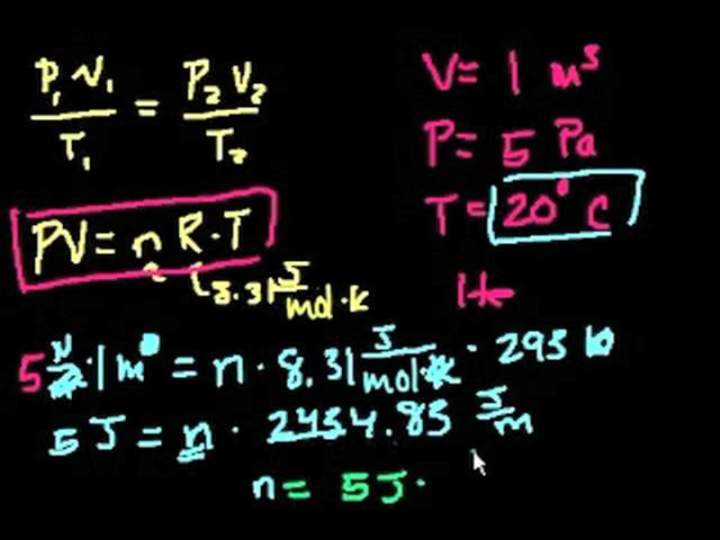 P₁V₁/T₁ = P₂V₂/T₂
V= 1 m³
P= 5 Pa
T= 20° C
PV= n R·T
8.31 J/mol·K
He
5 N · 1 m = n · 8.31 J/mol · 293
5 J = n · 2434.83 J/m
n = 5J·